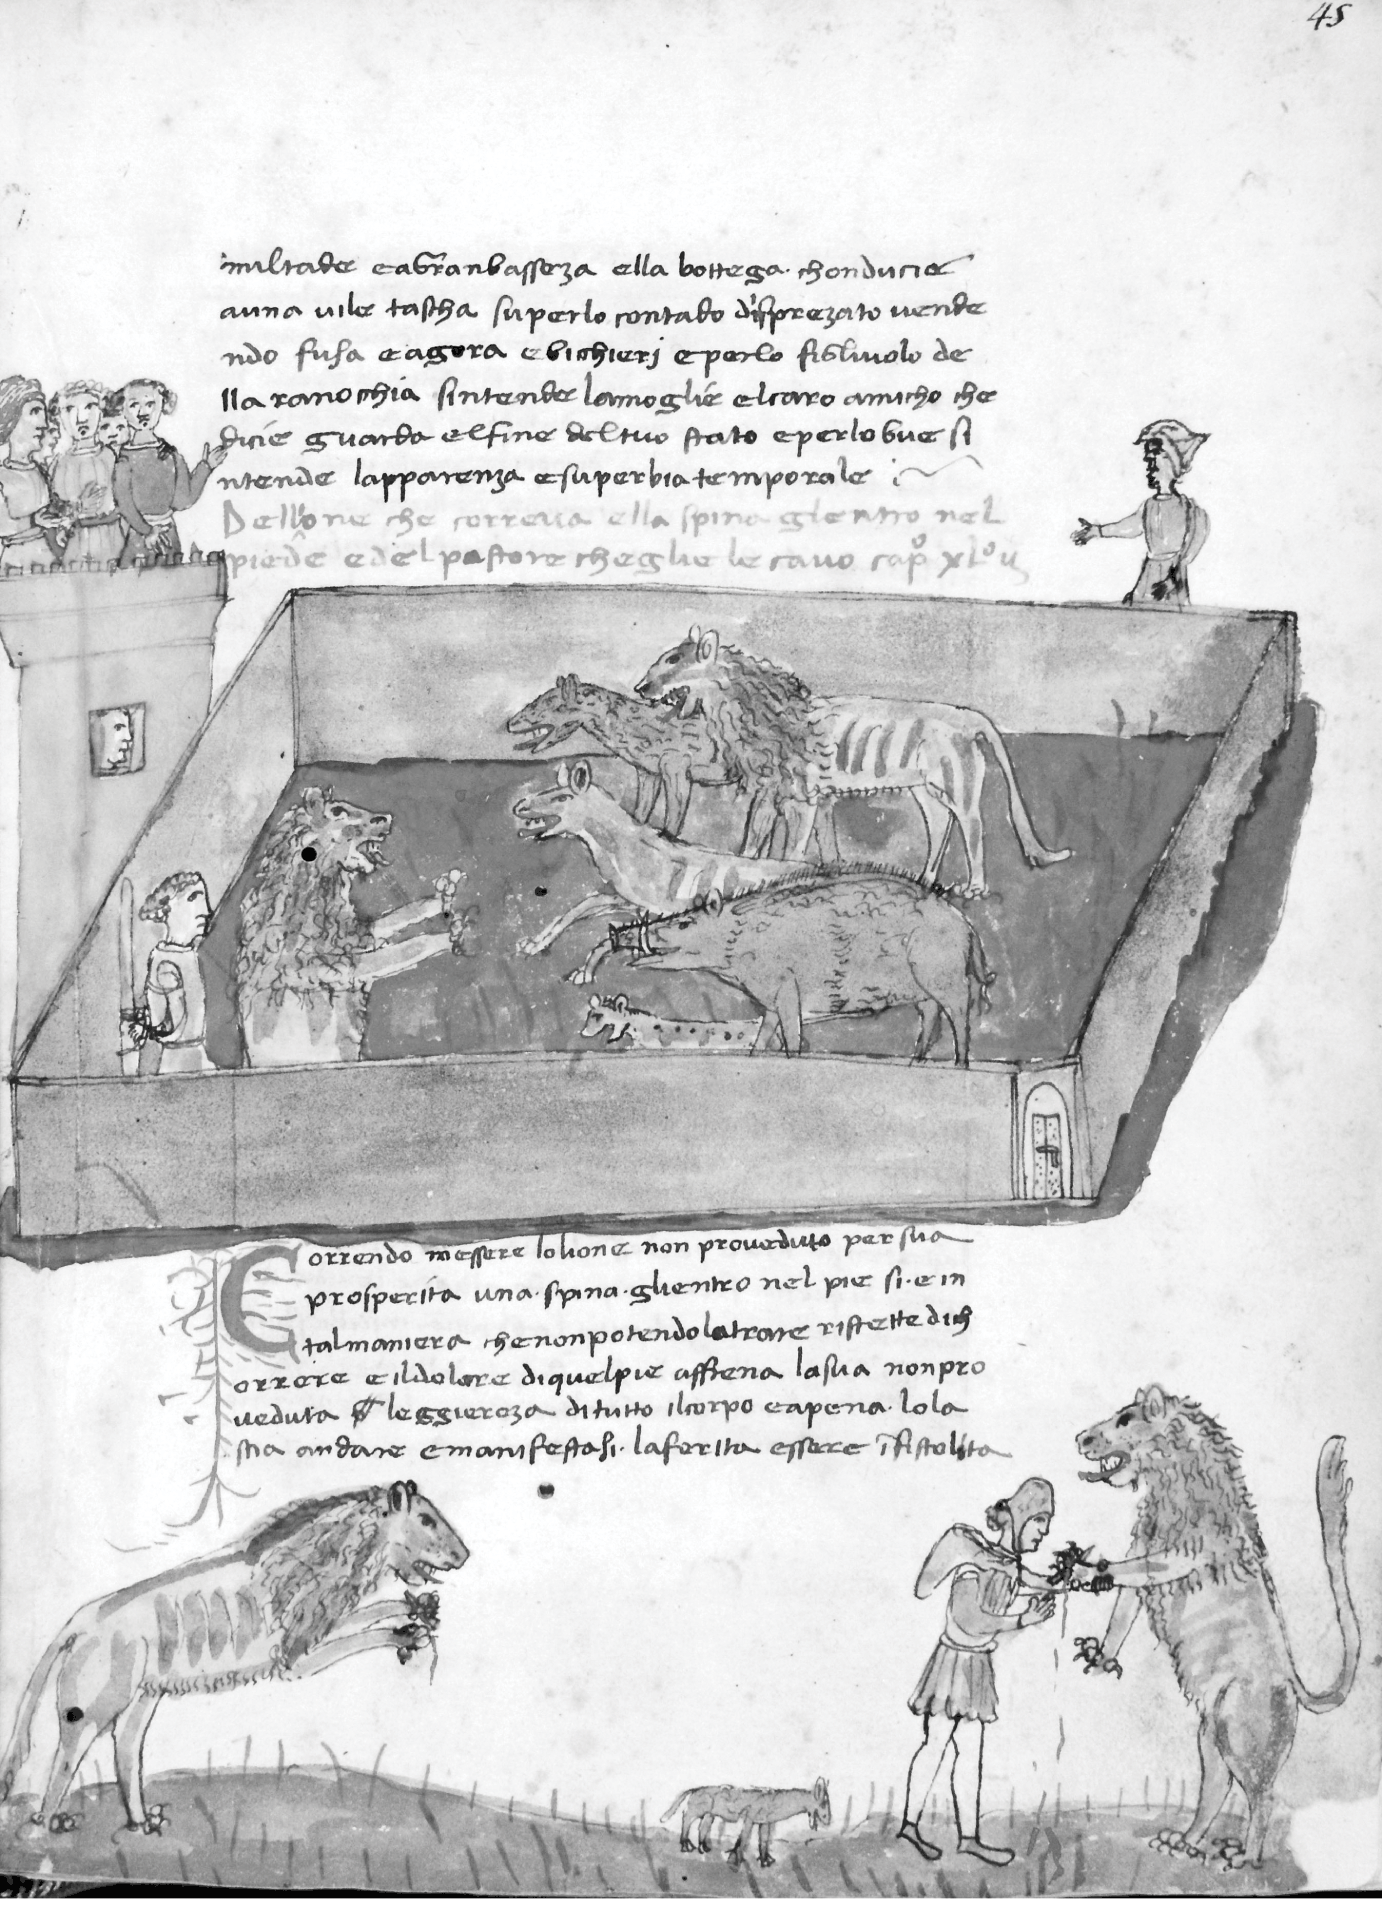 45
miltade eagranbasseza ella bottega · chonducie
auna vile tascha superlo contado disprezato vende
ndo fusa eagora ebichieri eperlo figliuolo de
lla ranochia sintende lamoglie elcaro amicho che
dicie guarda elfine deltuo stato eperlobue si
ntende lapparenza esuperbia temporale
Dellione che correva ella spina glentro nel
piede edel pastore cheglie le cavo capo
Correndo messere lolione non proveduto per sua
prosperita una · spina · glientro nel pie si · e in
talmaniera chenonpotendolatrare ristette dich
orrere eildolore diquelpie affrena lasua nonpro
veduta leggiereza ditutto ilcorpo eapena · lola
scia andare emanifestasi · laferita essere ifistolita